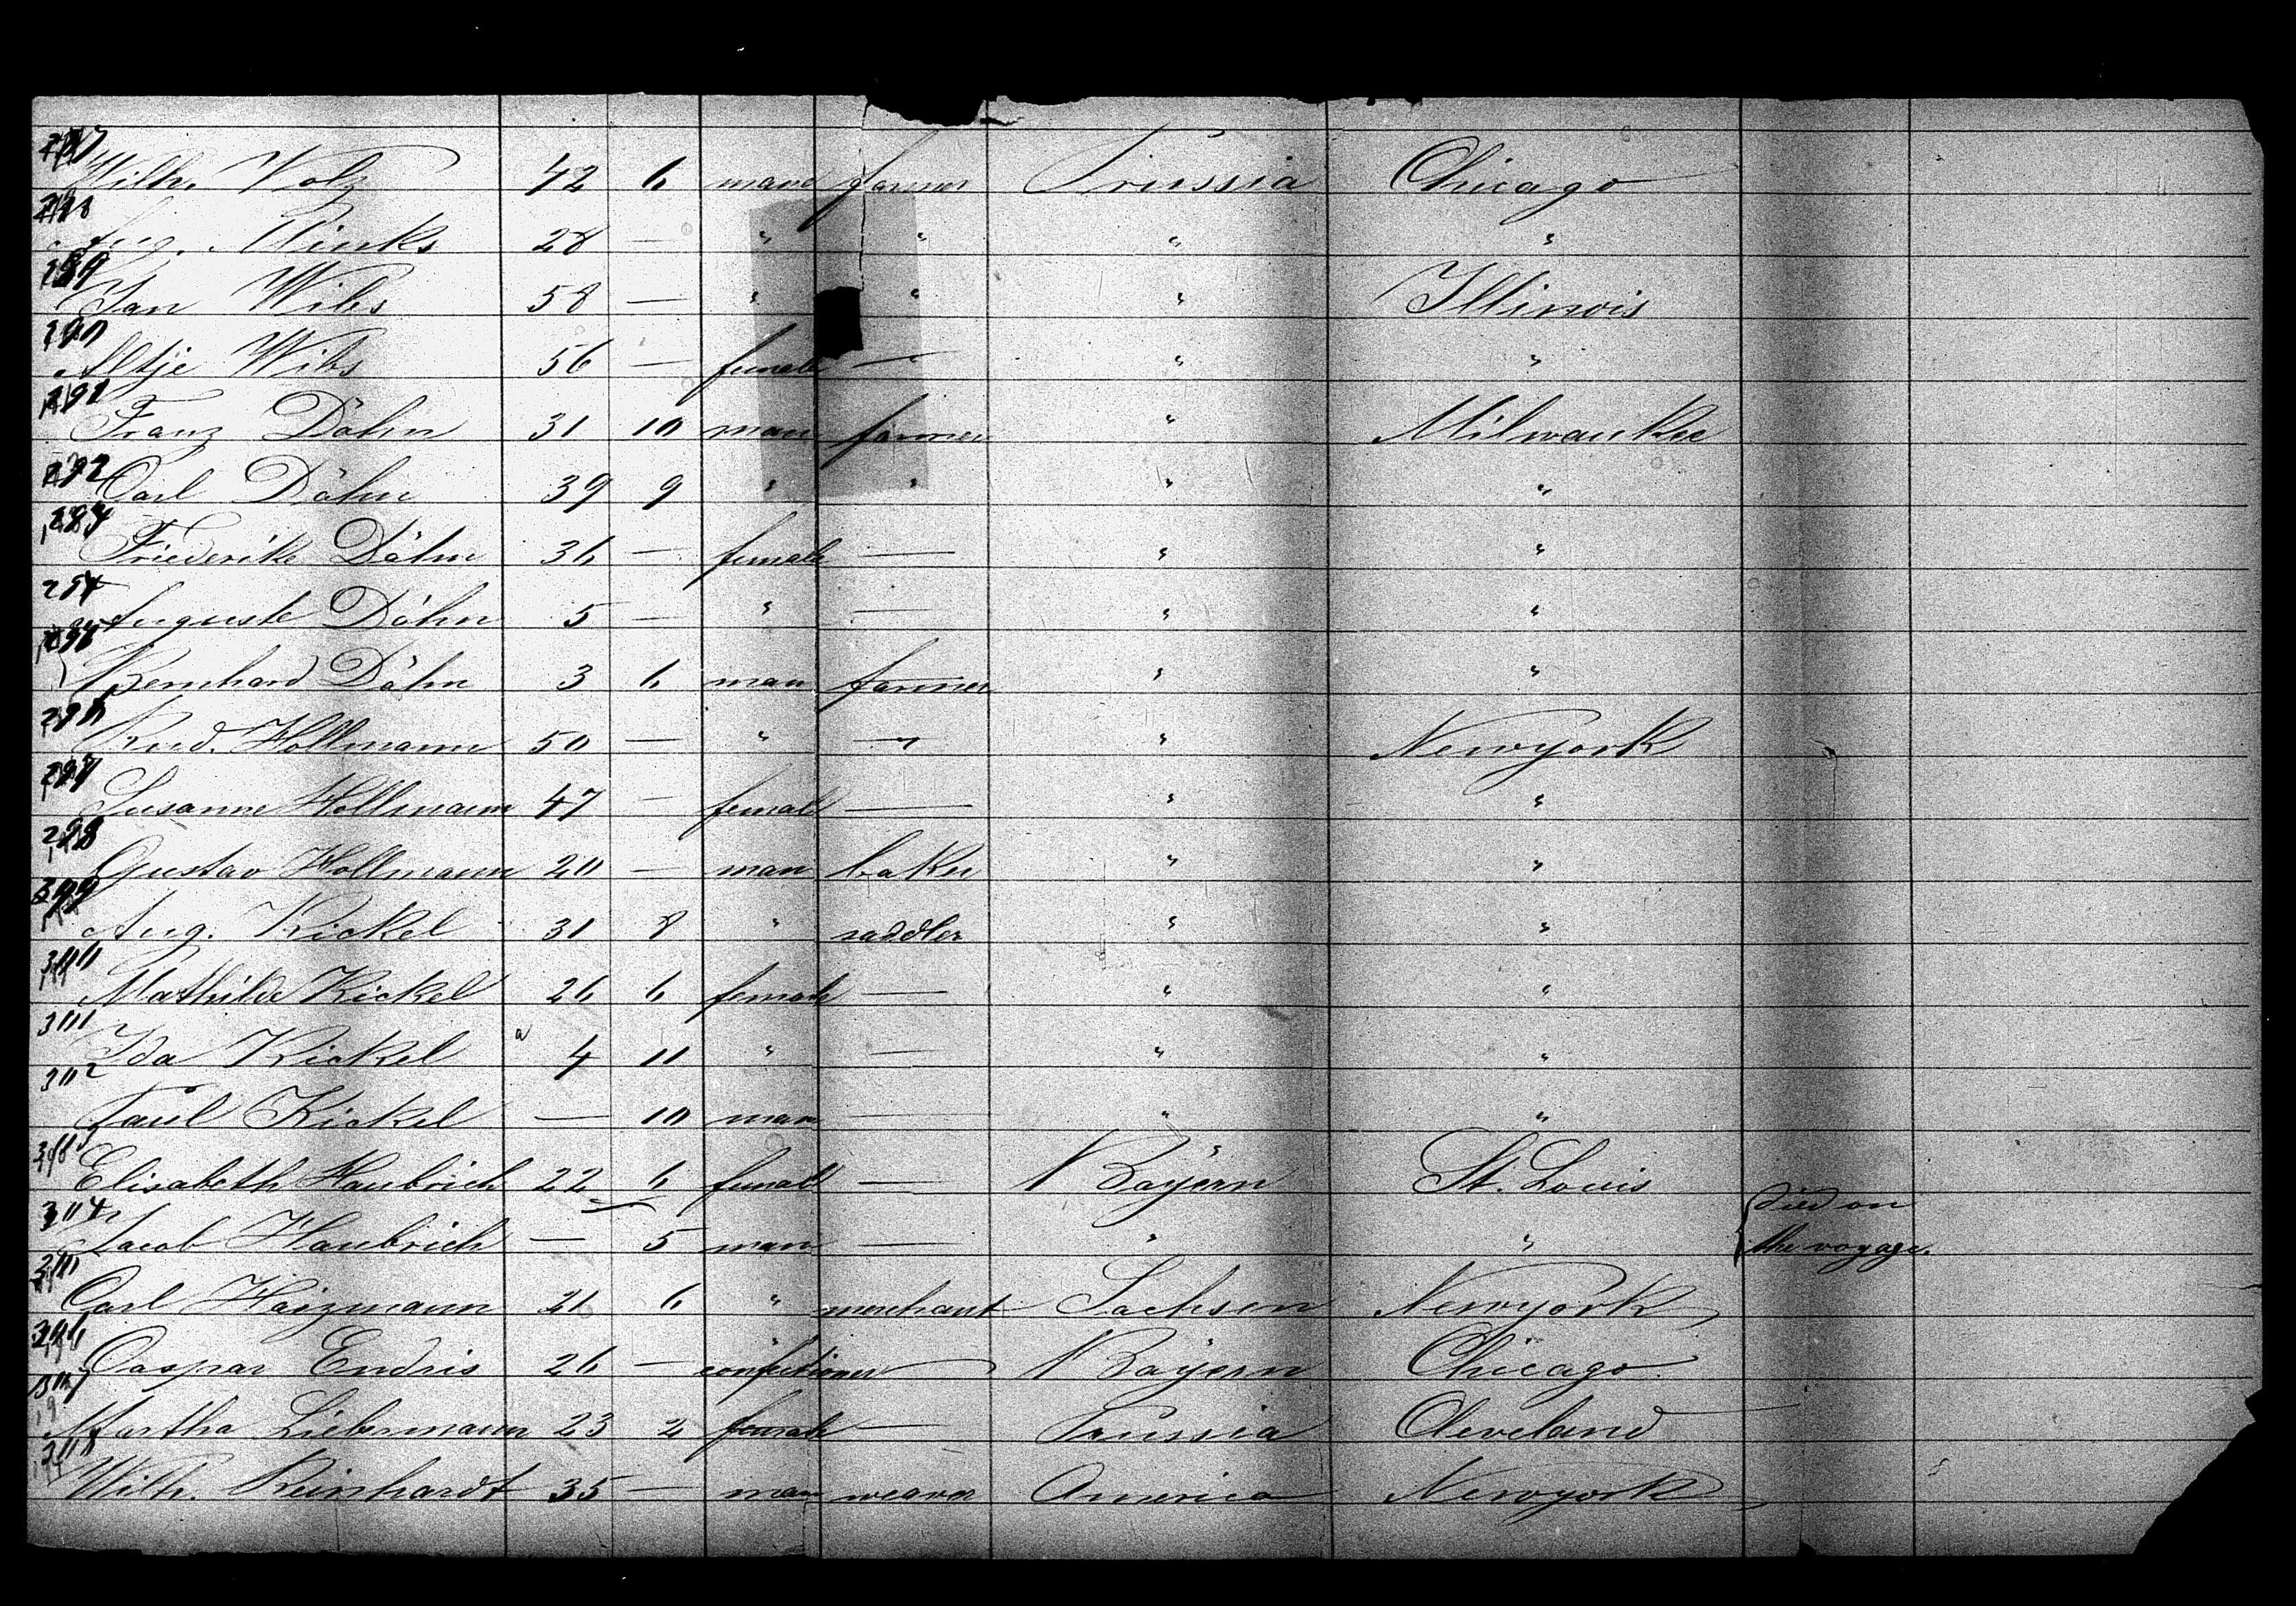 287
Wilh. Volz 42 6 man farmer Prussia Chicago
288
Aug. Minks 28 — " " " "
289
Jan Wibs 58 — " " " Illinois
290
Altje Wibs 56 — female — " "
291
Franz Döhn 31 10 man farmer " Milwaukee
292
Carl Döhn 39 9 " " " "
293
Friederike Döhn 36 — female — " "
294
Auguste Döhn 5 — " — " "
295
Bernhard Döhn 3 6 man farmer " "
296
Rud. Hollmann 50 — " — " Newyork
297
Susanne Hollmann 47 — female — " "
298
Gustav Hollmann 20 — man baker " "
299
Aug. Kickel 31 8 " saddler " "
300
Mathilde Kickel 26 6 female — " "
301
Ida Kickel 4 11 " — " "
302
Paul Kickel — 10 man — " "
303
Elisabeth Haubrich 22 6 female — Bayern St. Louis
304
Jacob Haubrich — 5 man — " " died on the voyage.
305
Carl Haizmann 21 6 " merchant Sachsen Newyork
306
Caspar Endris 26 — " confectioner Bayern Chicago
307
Martha Liebermann 23 2 female — Prussia Cleveland
308
Wilh. Reinhardt 35 — man weaver America Newyork